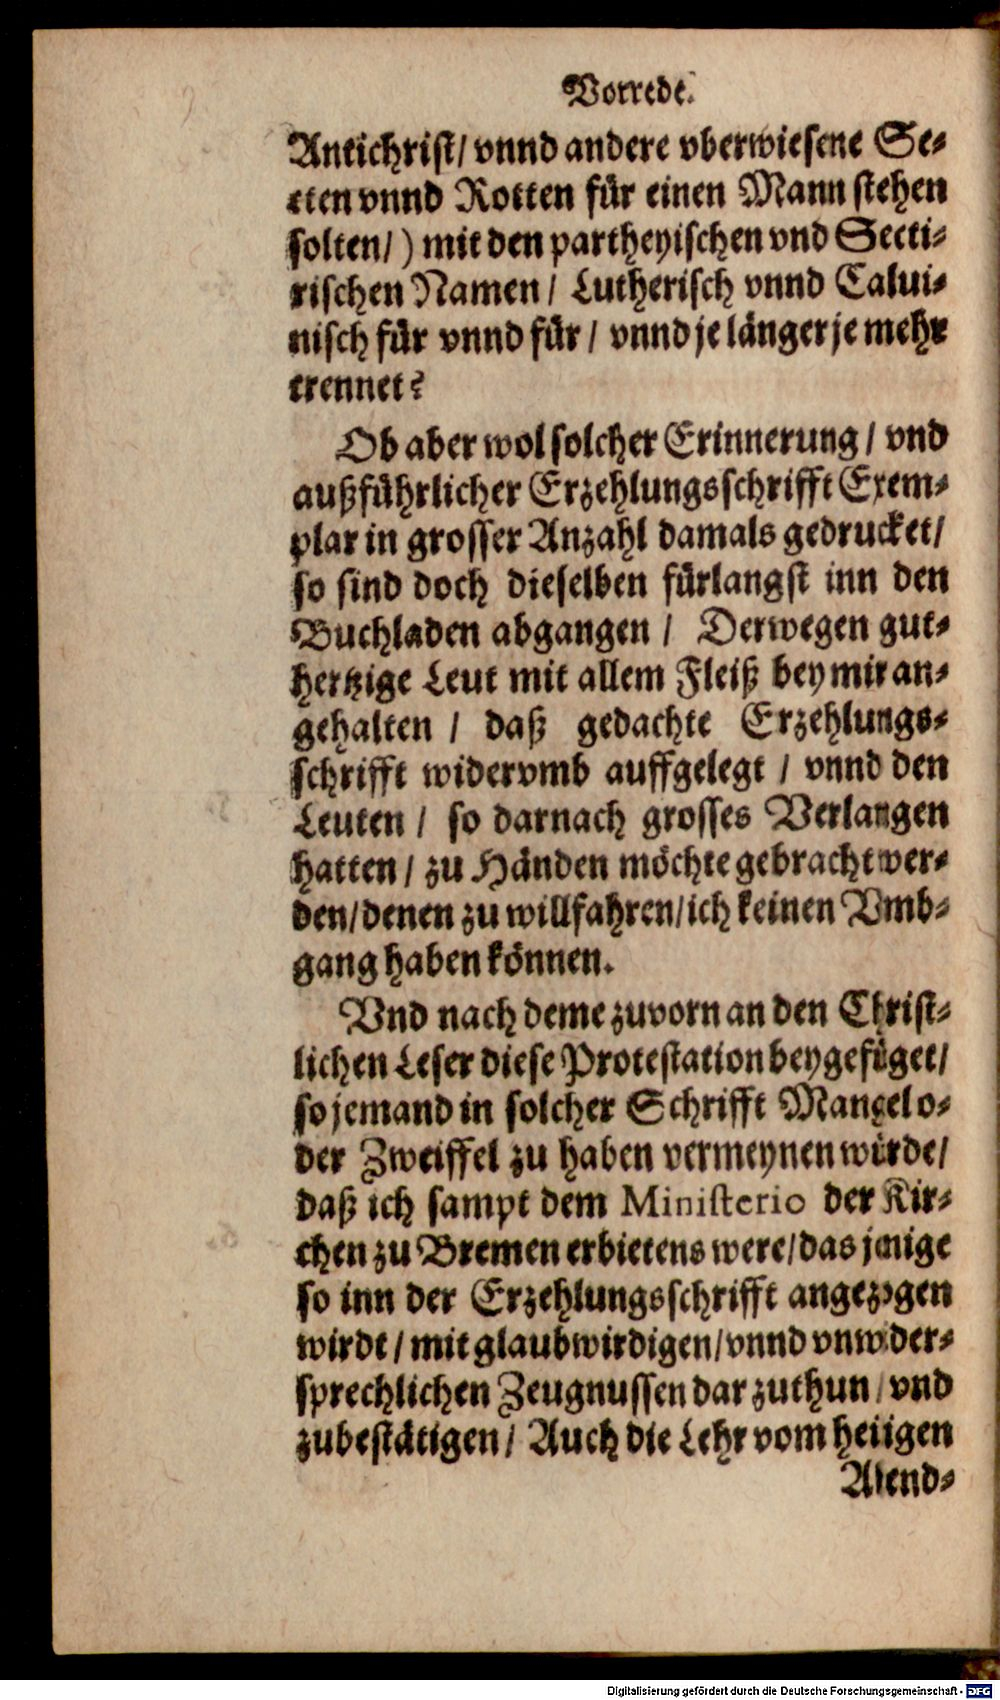 Vorrede.
Antichrist/ vnnd andere vberwiesene Se-
cten vnnd Rotten für einen Mann stehen
solten/) mit den partheyischen vnd Secti-
rischen Namen/ Lutherisch vnnd Calui-
nisch für vnnd für/ vnnd je länger je mehr
trennet?
Ob aber wol solcher Erinnerung/ vnd
außführlicher Erzehlungsschrifft Exem-
plar in grosser Anzahl damals gedrucket/
so sind doch dieselben fürlangst inn den
Buchladen abgangen/ Derwegen gut-
hertzige Leut mit allem Fleiß bey mir an-
gehalten/ daß gedachte Erzehlungs-
schrifft widervmb auffgelegt/ vnnd den
Leuten/ so darnach grosses Verlangen
hatten/ zu Händen möchte gebracht wer-
den/ denen zu willfahren/ ich keinen Vmb-
gang haben können.
Vnd nach deme zuvorn an den Christ-
lichen Leser diese Protestation beygefüget/
so jemand in solcher Schrifft Mangel o-
der Zweiffel zu haben vermeynen würde/
daß ich sampt dem Ministerio der Kir-
chen zu Bremen erbietens were/ das jenige
so inn der Erzehlungsschrifft angezogen
wirdt/ mit glaubwirdigen/ vnnd vnwider-
sprechlichen Zeugnussen darzuthun/ vnd
zubestätigen/ Auch die Lehr vom heiligen
Abend-
Digitalisierung gefördert durch die Deutsche Forschungsgemeinschaft - DFG